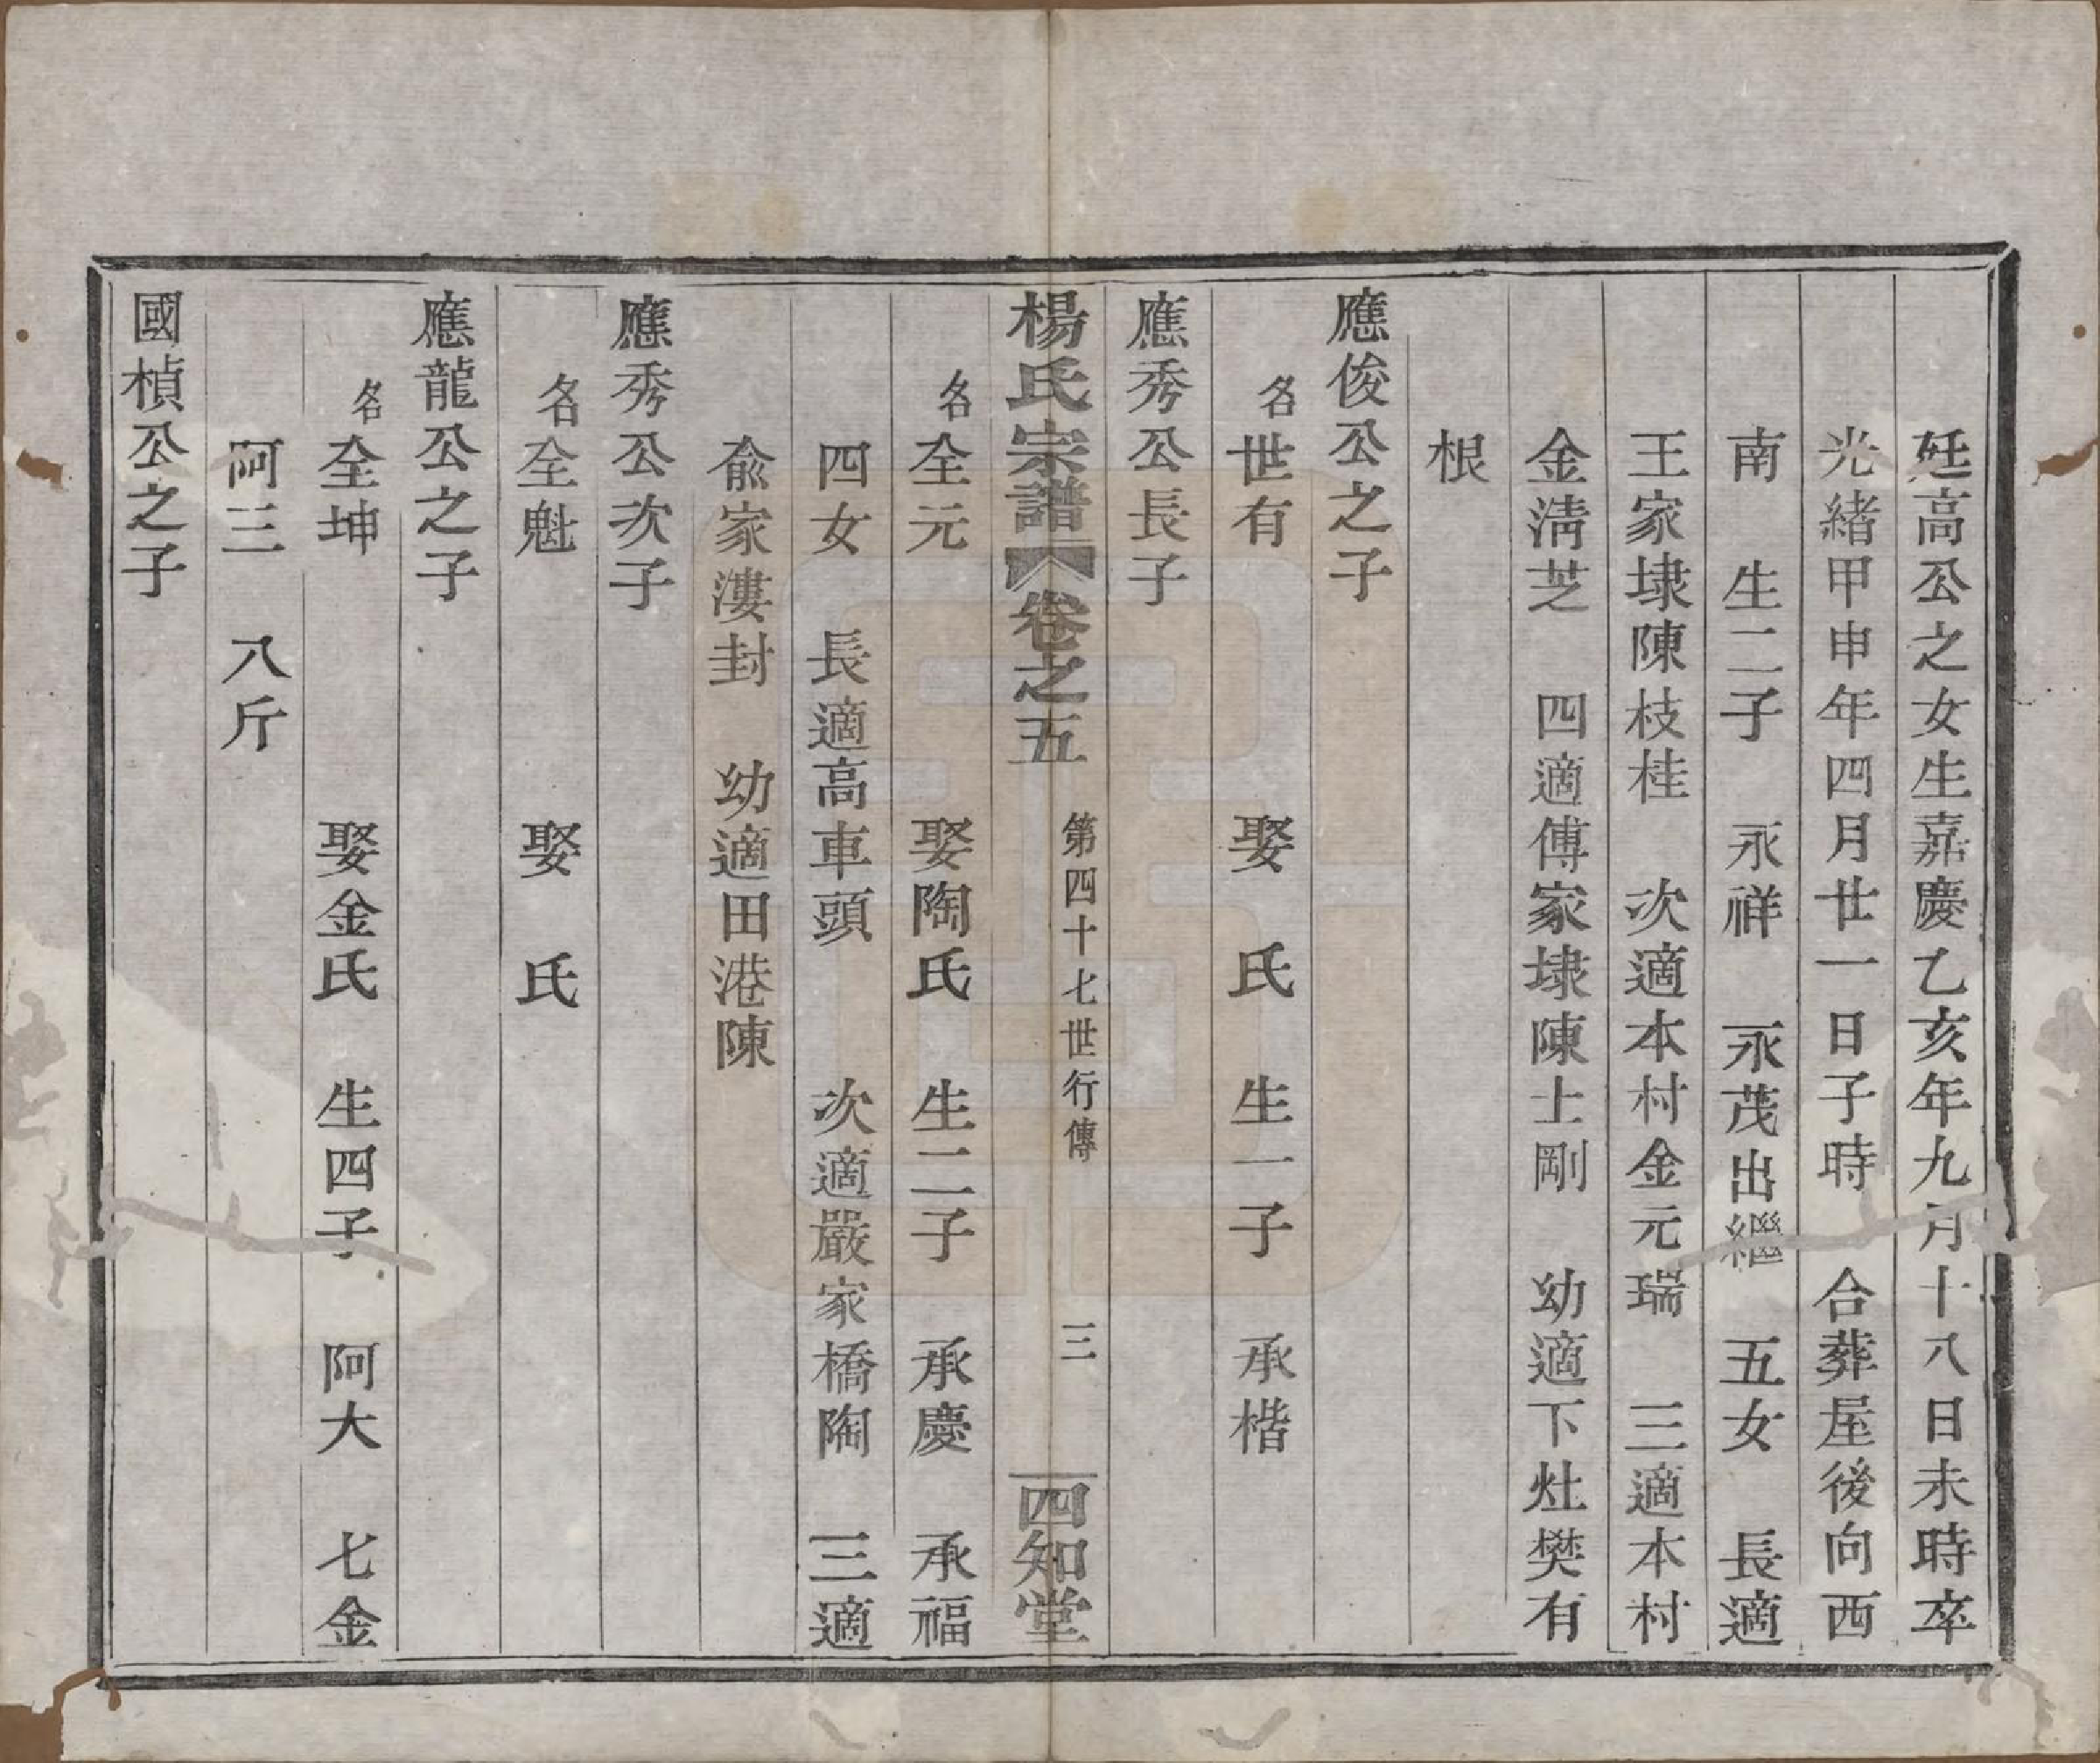 廷高公之女生嘉慶乙亥年九月十八日未時卒
光緒甲申年四月廿一日子時 合葬屋後向西
南 生二子 永祥 永茂出繼 五女 長適
王家埭陳枝桂 次適本村金元瑞 三適本村
金淸芝 四適傅家埭陳士剛 幼適下灶樊有
根
應俊公之子
名世有 娶 氏 生一子 承楷
應秀公長子
楊氏宗譜 卷之五 第四十七世行傳 三 四知堂
名全元 娶陶氏 生二子 承慶 承福
四女 長適高車頭 次適嚴家橋陶 三適
俞家漊封 幼適田港陳
應秀公次子
名全魁 娶 氏
應龍公之子
名全坤 娶金氏 生四子 阿大 七金
阿三 八斤
國楨公之子